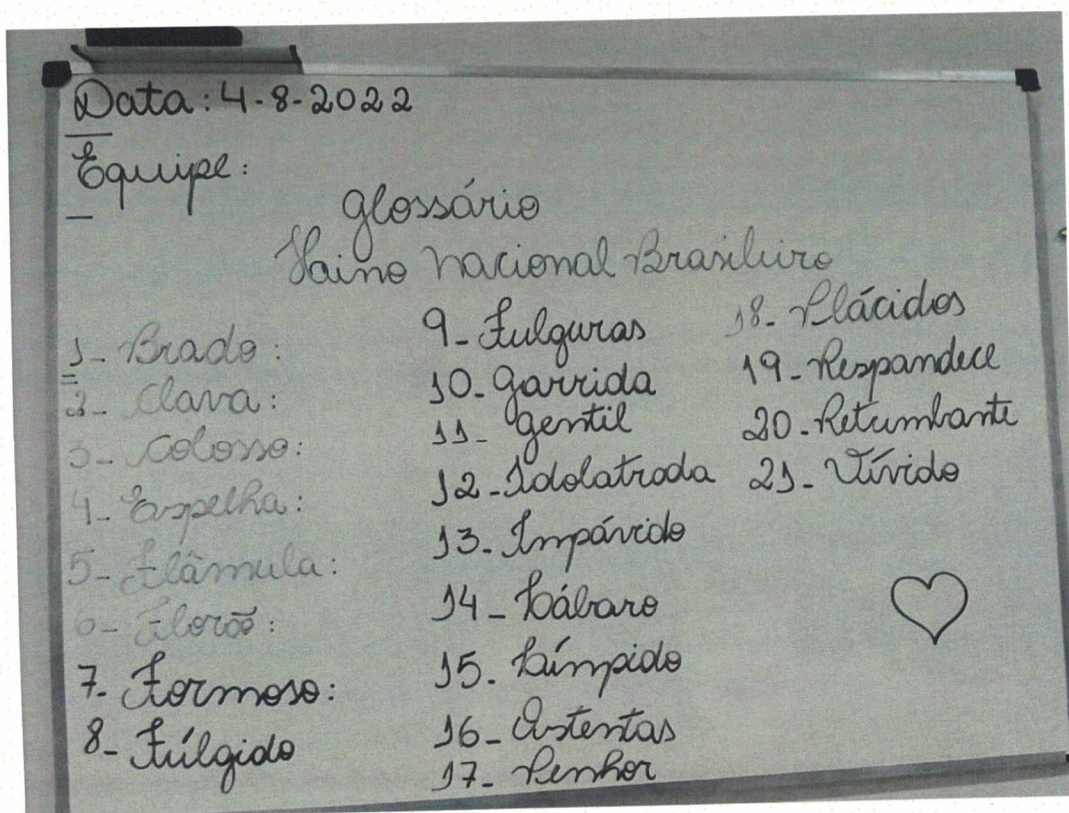 Data: 4-8-2022
Equipe:
Glossário
Haino Nacional Brasileiro
1- Brado:
2- Clava:
3- Colosso:
4- Espelha:
5- Flâmula:
6- Florão:
7- Formoso:
8- Fúlgido
9- Fulguras
10- Garrida
11- Gentil
12- Idolatroda
13- Impávido
14- Lábaro
15- Límpido
16- Ostentas
17- Penhor
18- Plácidos
19- Respandece
20- Retumbante
21- Vívido